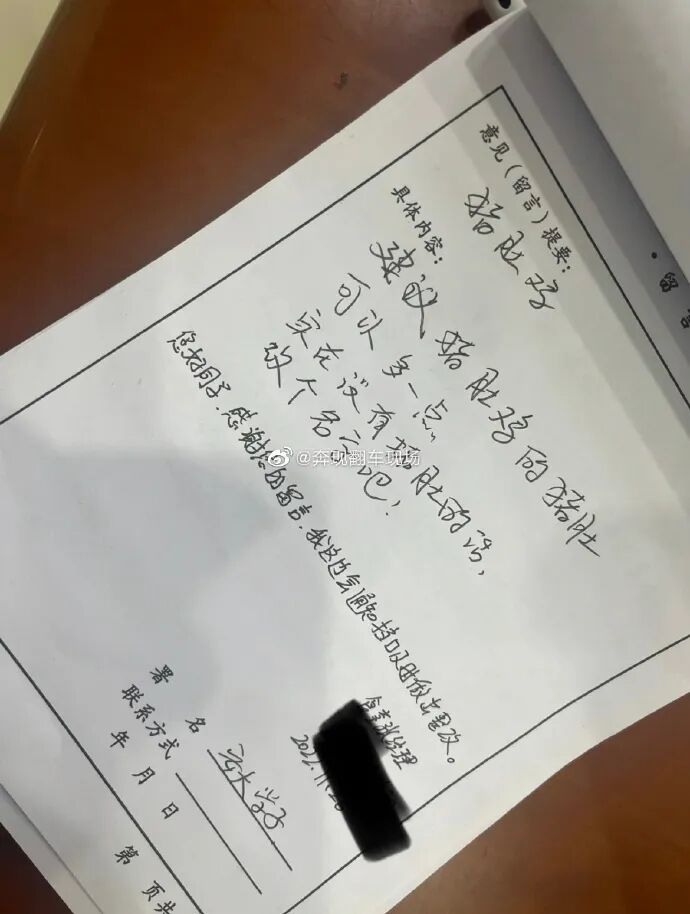 ·留言
意见(留言)提要:
猪肚鸡
具体内容:
建议猪肚鸡的猪肚
可以多一点
实在没有猪肚的话,
改个名字吧!
您好同学,感谢您的留言,我这边会通知档口及时做出整改。
经理
署名
联系方式
年 月 日
第 页共
@奔现翻车现场